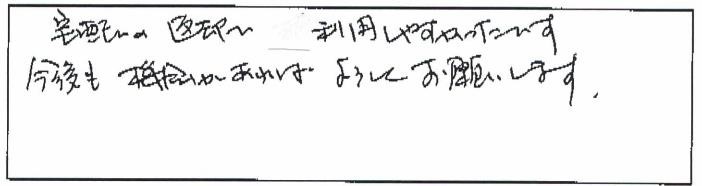 宅配の 利用しやすかったです
今後も 機会があれば よろしくお願いします。